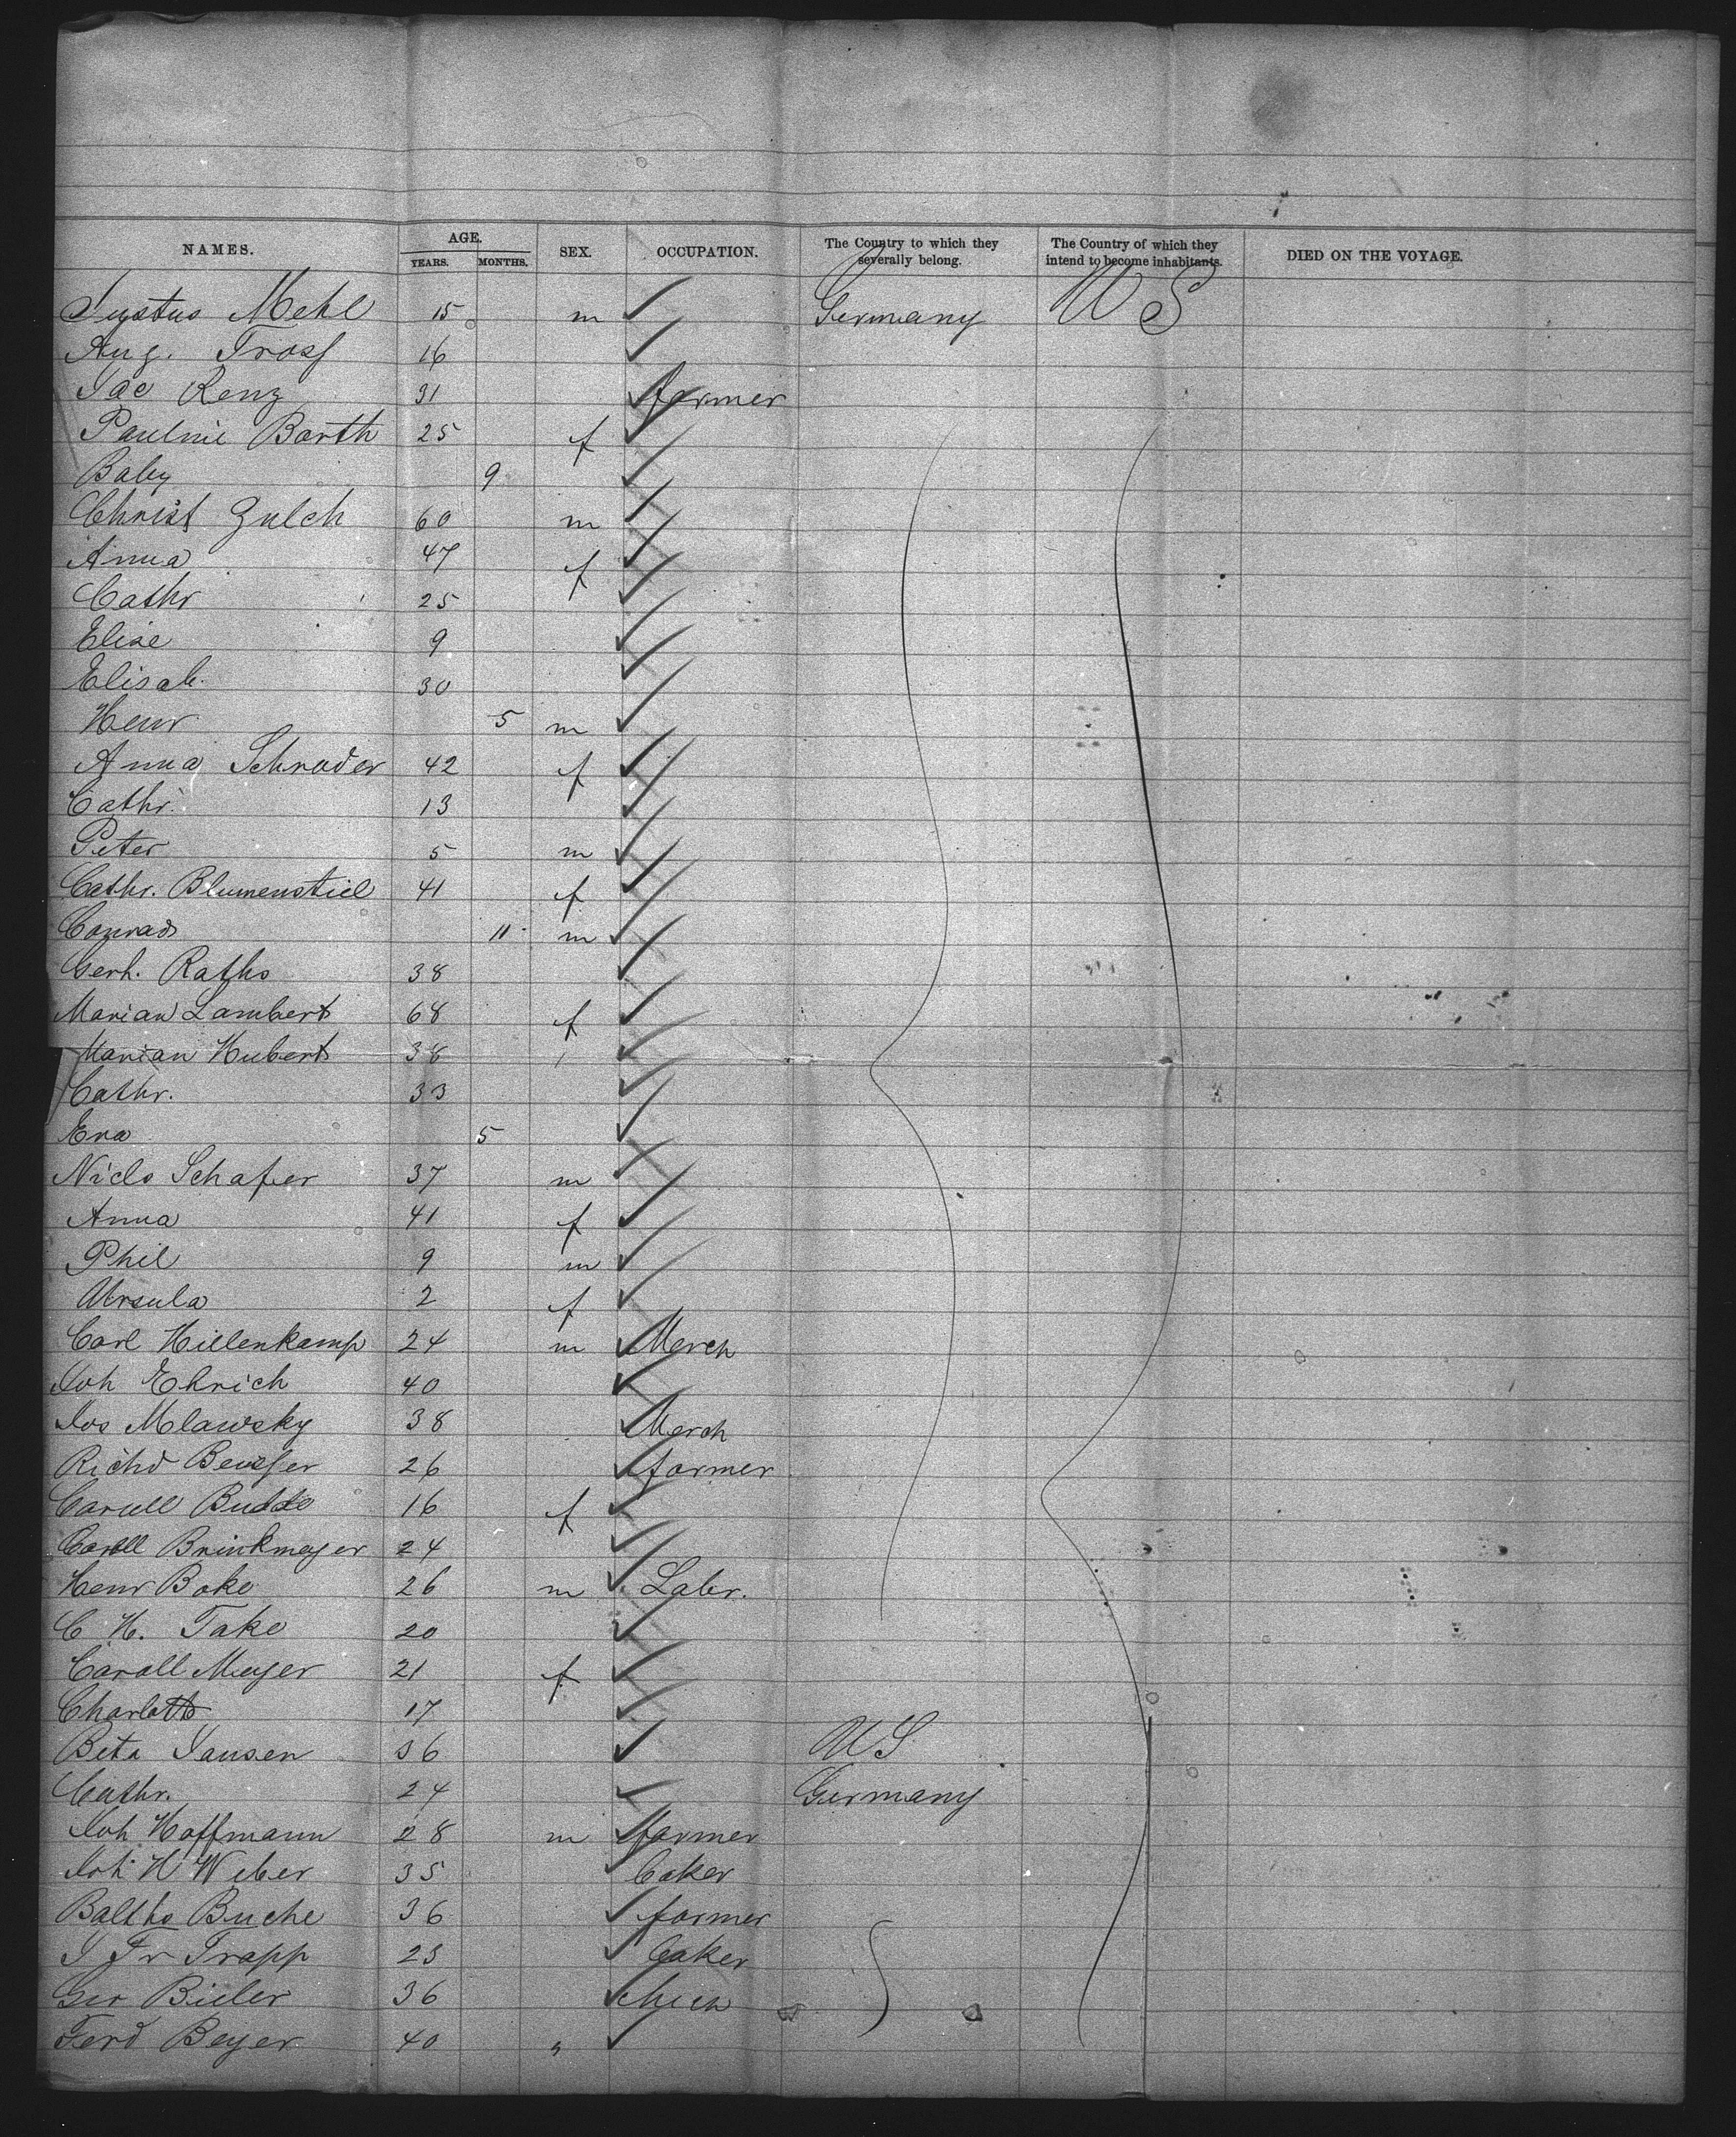 NAMES. AGE. YEARS. MONTHS. SEX. OCCUPATION. The Country to which they severally belong. The Country of which they intend to become inhabitants. DIED ON THE VOYAGE.
Justus Mehl 15 m Germany U S
Aug. Trosf 16
Jac Renz 31 farmer
Pauline Barth 25 f
Baby 9
Christ Gulch 60 m
Anna 47 f
Cathr 25
Elise 9
Elisab. 30
Henr 5 m
Anna Schrader 42 f
Cathr. 13
Peter 5 m
Cathr. Blumenstiel 41 f
Conrad 11 m
Gerh. Raths 38
Marian Lambert 68 f
Marian Hubert 38
Cathr. 33
Eva 5
Niclo Schafer 37 m
Anna 41 f
Phil 9 m
Ursula 2 f
Carl Hillenkamp 24 m Merch
Joh Ehrich 40
Jos Mlawsky 38 Merch
Richd 26 farmer
Budde 16 f
Brinkmeyer 24
Henr Boke 26 m Labr.
C H. Take 20
Caroll Meyer 21 f
Charlotte 17
Beta Jansen 36 U S
Cathr. 24 Germany
Joh Hoffmann 28 m farmer
Joh H Weber 35 baker
Balths Buche 36 farmer
J Fr Trapp 23 baker
Geo Bieler 36
Ferd Beyer 40 "